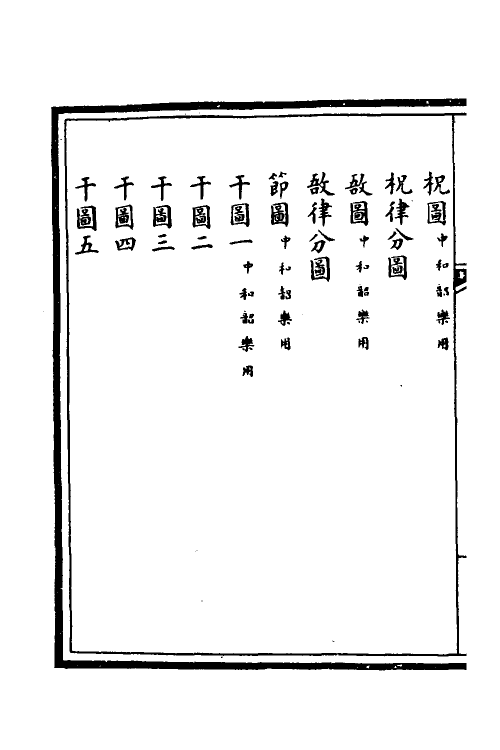 柷圖中和韶樂用
柷律分圖
敔圖中和韶樂用
敔律分圖
節圖中和韶樂用
干圖一中和韶樂用
干圖二
干圖三
干圖四
干圖五